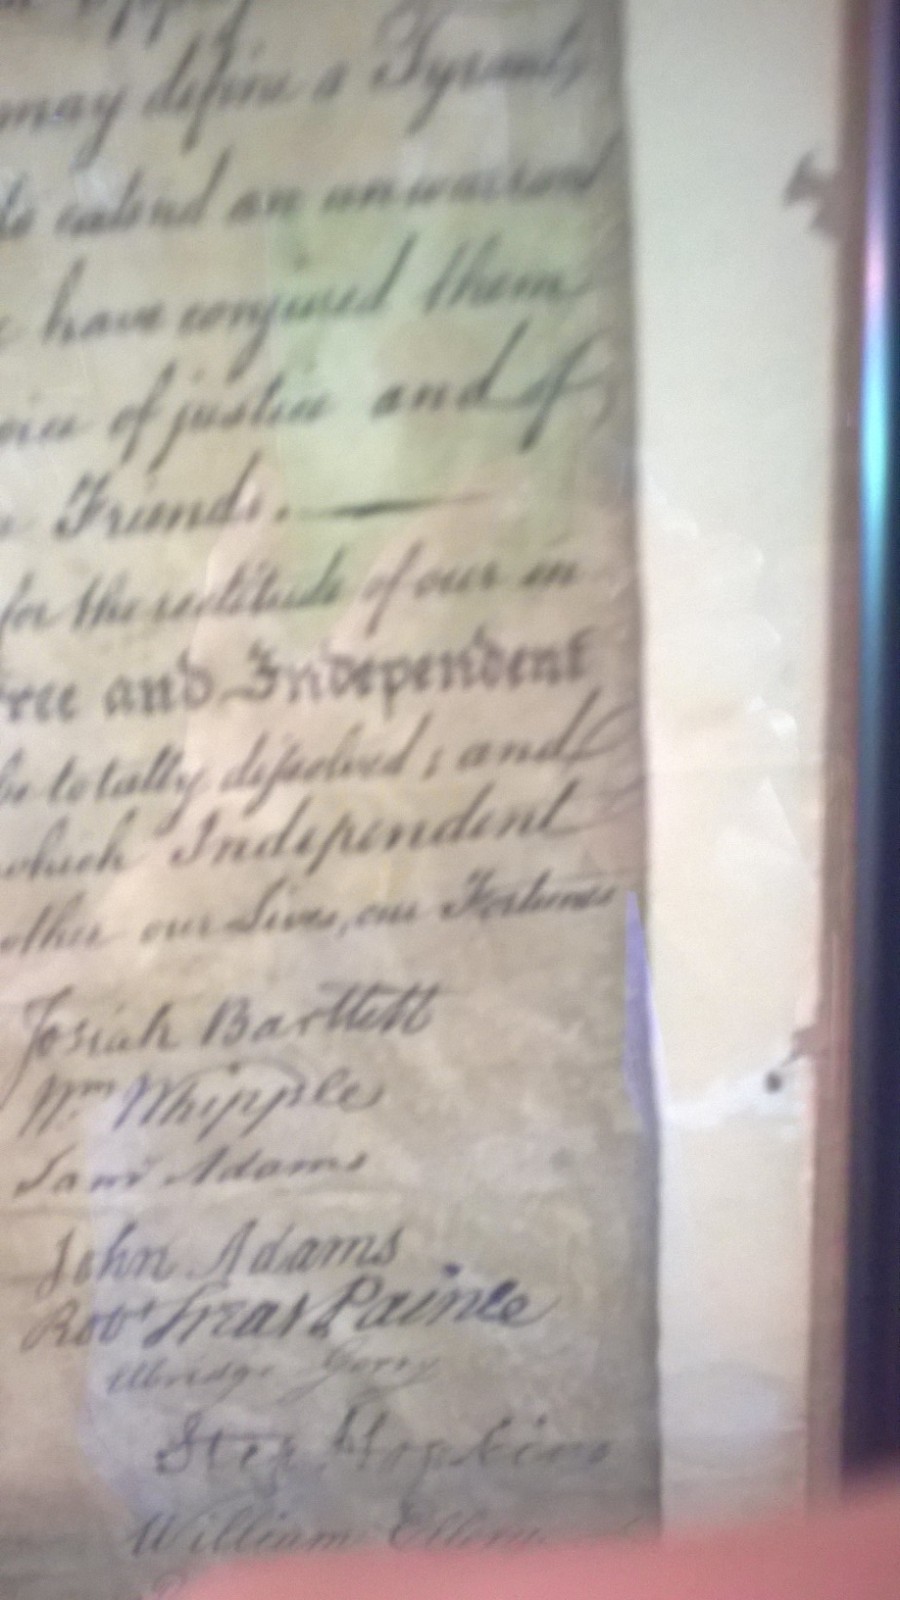 may define a Tyrant,
to extend an unwarrant
have conjured them
of justice and of
Friends.
for the rectitude of our in
and Independent
be totally dissolved; and
which Independent
other our Lives, our Fortunes
Josiah Bartlett
Wm Whipple
Saml Adams
John Adams
Robt Treat Paine
Elbridge Gerry
Step Hopkins
William Ellery